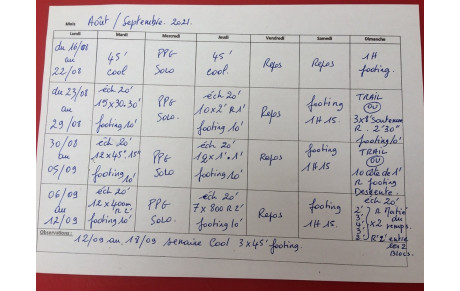 Mois Août / Septembre. 2021.
Lundi Mardi Mercredi Jeudi Vendredi Samedi Dimanche
du 16/08 au 22/08
45' cool
PPG Solo
45' cool.
Repos
Repos
1H footing.
du 23/08 au 29/08
éch 20'
15x30.30'
footing 10'
PPG Solo.
éch 20'
10x2' R1'
footing 10'
Repos
footing 1H15
TRAIL
OU
3x8' soutenu
R. 2'30"
footing 10'
30/08 au 05/09
éch 20'
12x45".15"
footing 10'
PPG Solo
éch 20'
footing 10'
Repos
footing 1H15
TRAIL
OU
10 côte de 1'
R footing
Descente.
06/09 au 12/09
éch 20'
12x400m
footing 10'
PPG Solo.
éch 20'
7x800 R2'
footing 10'
Repos
footing 1H15.
R
du temps.
x2
entre les 2 Blocs.
Observations :
12/09 au 18/09 semaine Cool 3x45' footing.